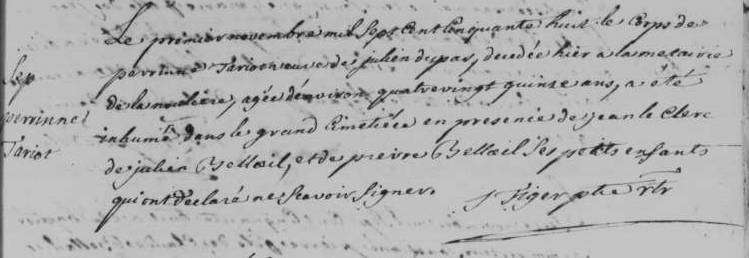 Le premier novembre mil Sept Cent Cinquante huit le Corps de
perrinne Tariot veuve de julien dupas, decedée hier a la metairie
de la noeliere, agée d'environ quatrevingt quinze ans, a été
inhumé dans le grand Cimetiéré en presence de jean le Clerc
de julien Bellœil, et de pierre Bellœil Ses petits enfants
qui ont déclaré ne Scavoir Signer.
J Figer ptre rtr
Sep
perrinne
Tariot